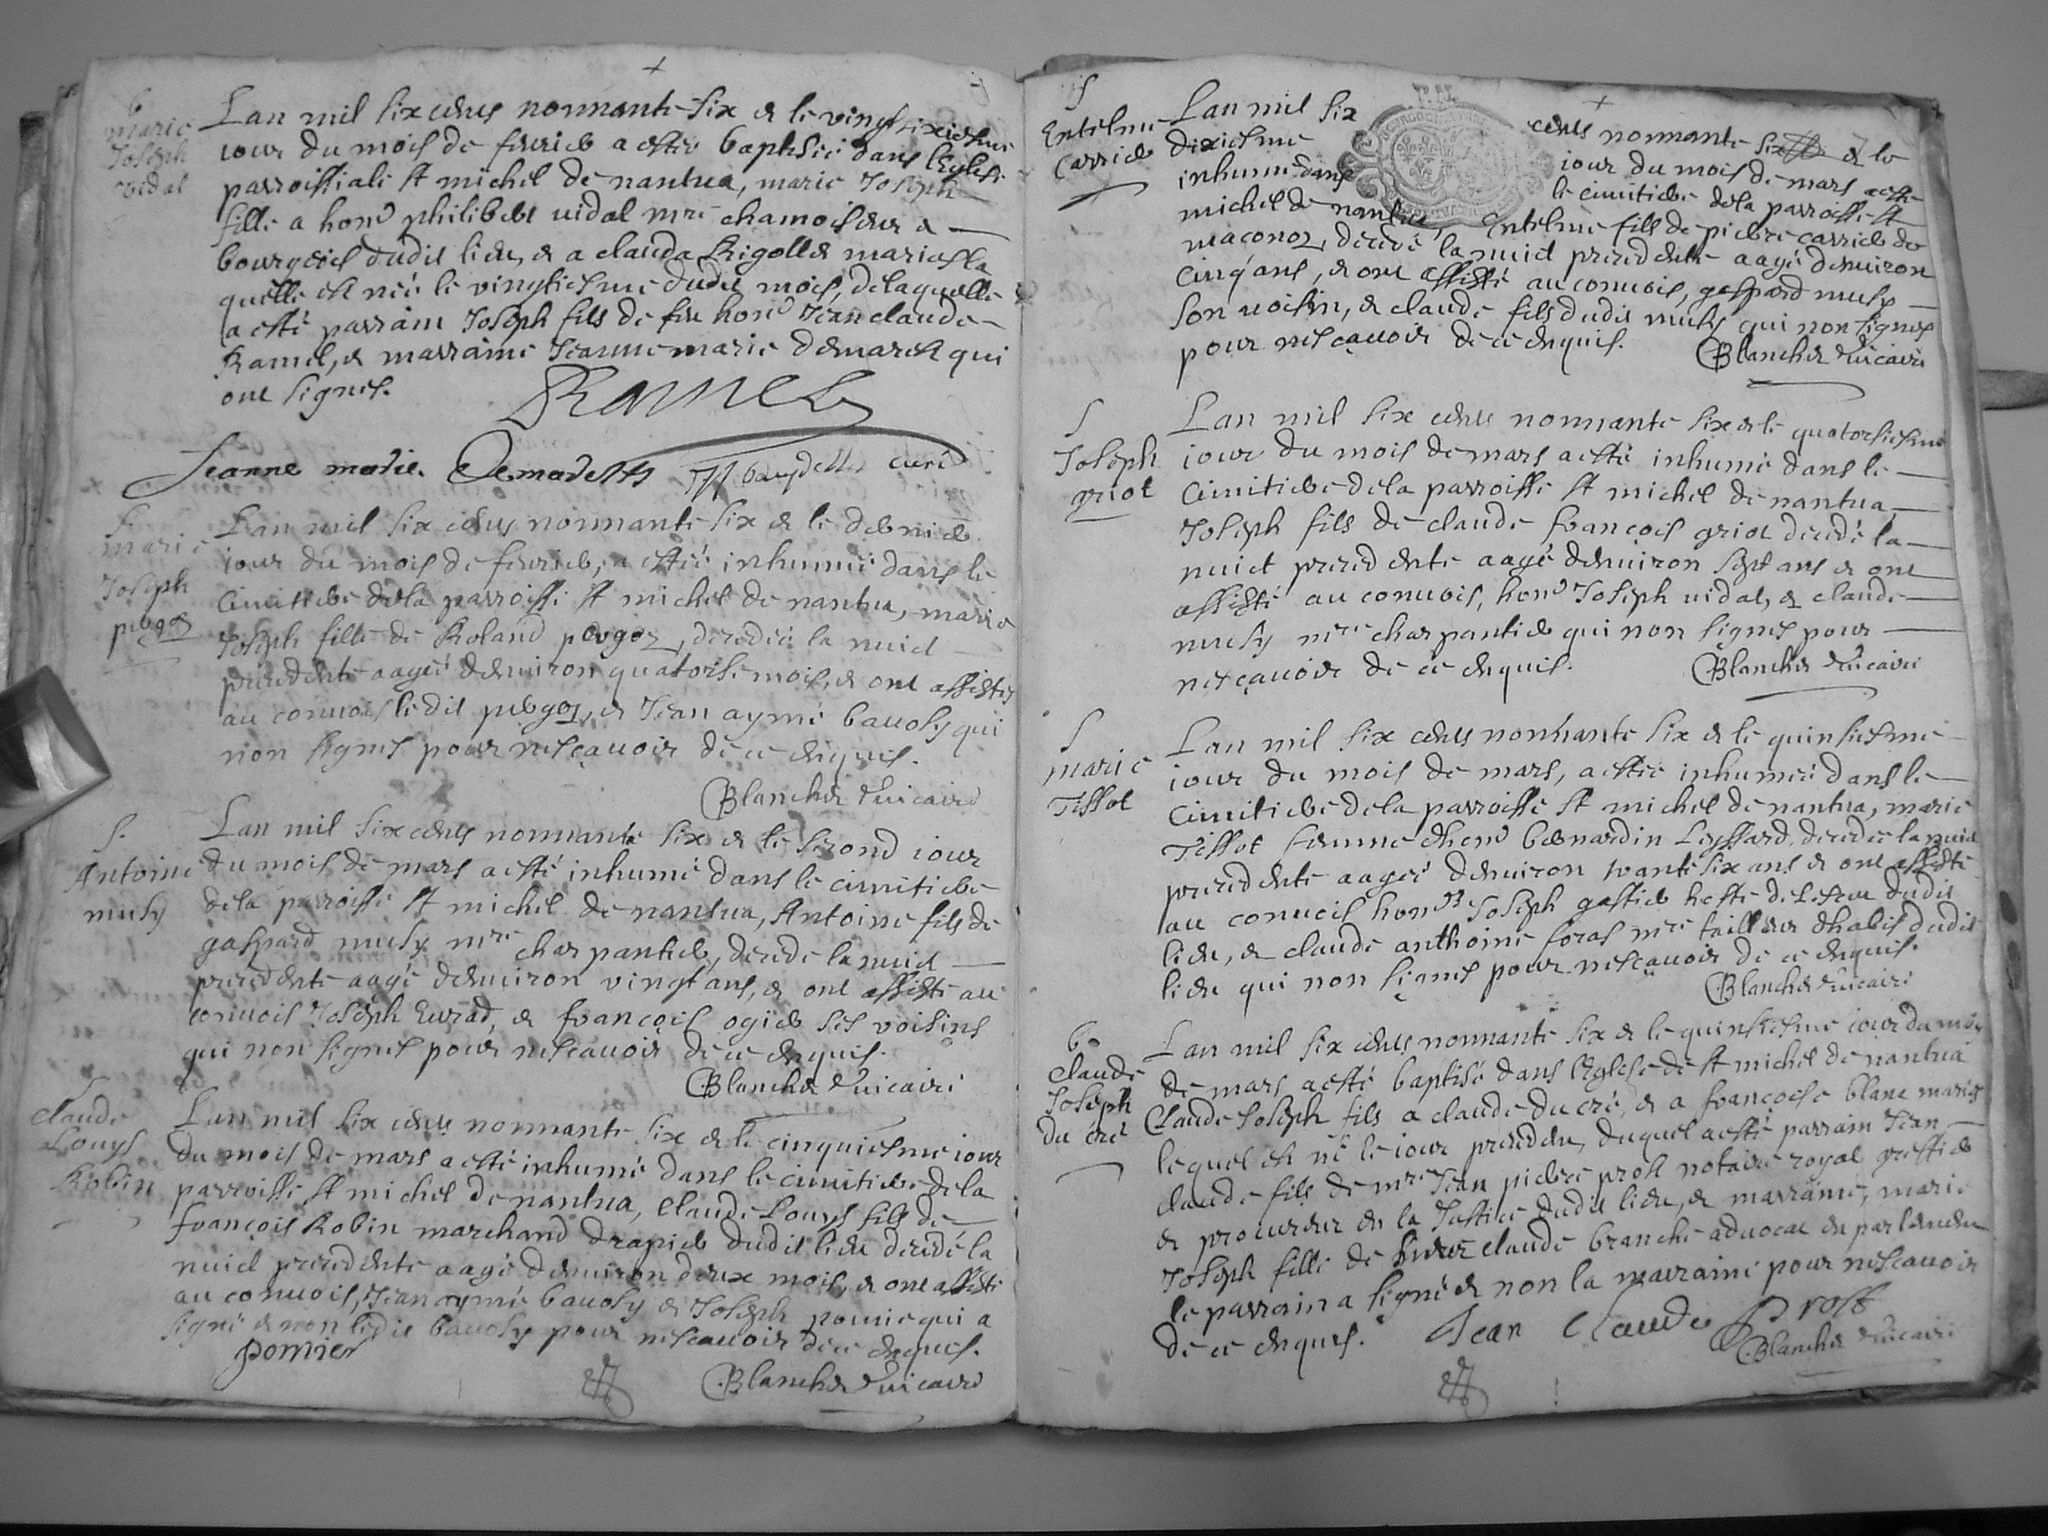 b
marie
Joseph
vidal
Lan mil six cents nonnante six & le vingt sixiesme
jour du mois de fevrier a esté baptisée dans leglise
parroissiale st michel de nantua, marie Joseph
fille a honr philibert vidal mre chamoiseur &
bourgeois dudit lieu, & a clauda Rigollet mariesla
quelle est née le vingtiesme dudit mois, delaquelle
a esté parrain Joseph fils de feu honr Jean claude
Ramel, & marraine Jeanne marie demarest qui
ont signes.
Ramel
Jeanne marie Demarests curé
S.
marie
Joseph
pergoz
Lan mil six cents nonnante six & le dernier
jour du mois de fevrier, a esteé inhumeé dans le
cimitiere dela parroisse st michel de nantua, marie
Joseph fille de Roland pergoz, decedeé la nuict
precedente aageé denviron quatorse mois, & ont assistés
au convois ledit pergoz, & Jean aymé bavosy qui
non signes pour nesçavoir de ce enquis.
Blanchet vicaire
S.
Antoine
musy
Lan mil six cents nonnante six & le second jour
du mois de mars a esté inhumé dans le cimitiere
dela parroisse st michel de nantua, Antoine fils de
gaspard musy mre charpantier, decede la nuict
precedente aagé denviron vingt ans, & ont assisté au
convois Joseph Evrad, & françois ogier ses voisins
qui non signes pour nescavoir de ce enquis.
Blanchet vicaire
S
claude
Louys
Robin
Lan mil six cents nonnante six & le cinquiesme jour
du mois de mars a esté inhumé dans le cimitiere dela
parroisse st michel de nantua, Claude Louys fils de
françois Robin marchand drapier dudit lieu decedé la
nuict precedente aagé denviron deux mois, & ont assisté
au convois, Jean aymé bavosy & Joseph pomie qui a
signé & non ledit bavosy pour nescavoir de ce enquis.
pomier
Blanchet vicaire
S
Entelme
Carrier
Lan mil six cents nonnante six & le
dixiesme jour du mois de mars a esté
inhumé dans le cimitiere dela parroisse st
michel de nantua, Entelme fils de pierre carrier de
maconoz, decedé la nuict precedente aagé denviron
cinq ans, & ont assisté au convois, gaspard musy
son voisin, & claude fils dudit musy qui non signes
pour nesçavoir de ce enquis. Blanchet vicaire
S
Joseph
griot
Lan mil six cents nonnante six & le quatorsiesme
jour du mois de mars a esté inhumé dans le
Cimitiere dela parroisse st michel de nantua
Joseph fils de claude françois griot decedé la
nuict precedente aagé denviron sept ans & ont
assisté au convois, honr Joseph vidal, & claude
musy mre charpantier qui non signes pour
nesçavoir de ce enquis. Blanchet vicaire
S
marie
Tissot
Lan mil six cents nonnante six & le quinsiesme
jour du mois de mars, a esteé inhumeé dans le
Cimitiere dela parroisse st michel de nantua, marie
Tissot femme dhonr bernardin Leyssard, decedeé la nuict
precedente aageé denviron trante six ans & ont assisté
au convois honrs Joseph gastier hoste de dudit
lieu, & claude anthoine foras mre tailleur dhabis dudit
lieu qui non signes pour nescavoir de ce enquis.
Blanchet vicaire
b.
Claude
Joseph
du cré
Lan mil six cents nonnante six & le quinsiesme jour du mois
de mars a esté baptisé dans leglise de st michel de nantua
Claude Joseph fils a claude du cré, & a françoise blanc mariés
lequel est né le jour precedent, duquel a esté parrain Jean
claude fils de mre Jean pierre prost notaire royal greffier
& procureur en la Justice dudit lieu, & marraine, marie
Joseph fille de claude branche advocat en parlement
le parrain a signé & non la marraine pour nescavoir
de ce enquis. Jean Claude Prost
Blanchet vicaire